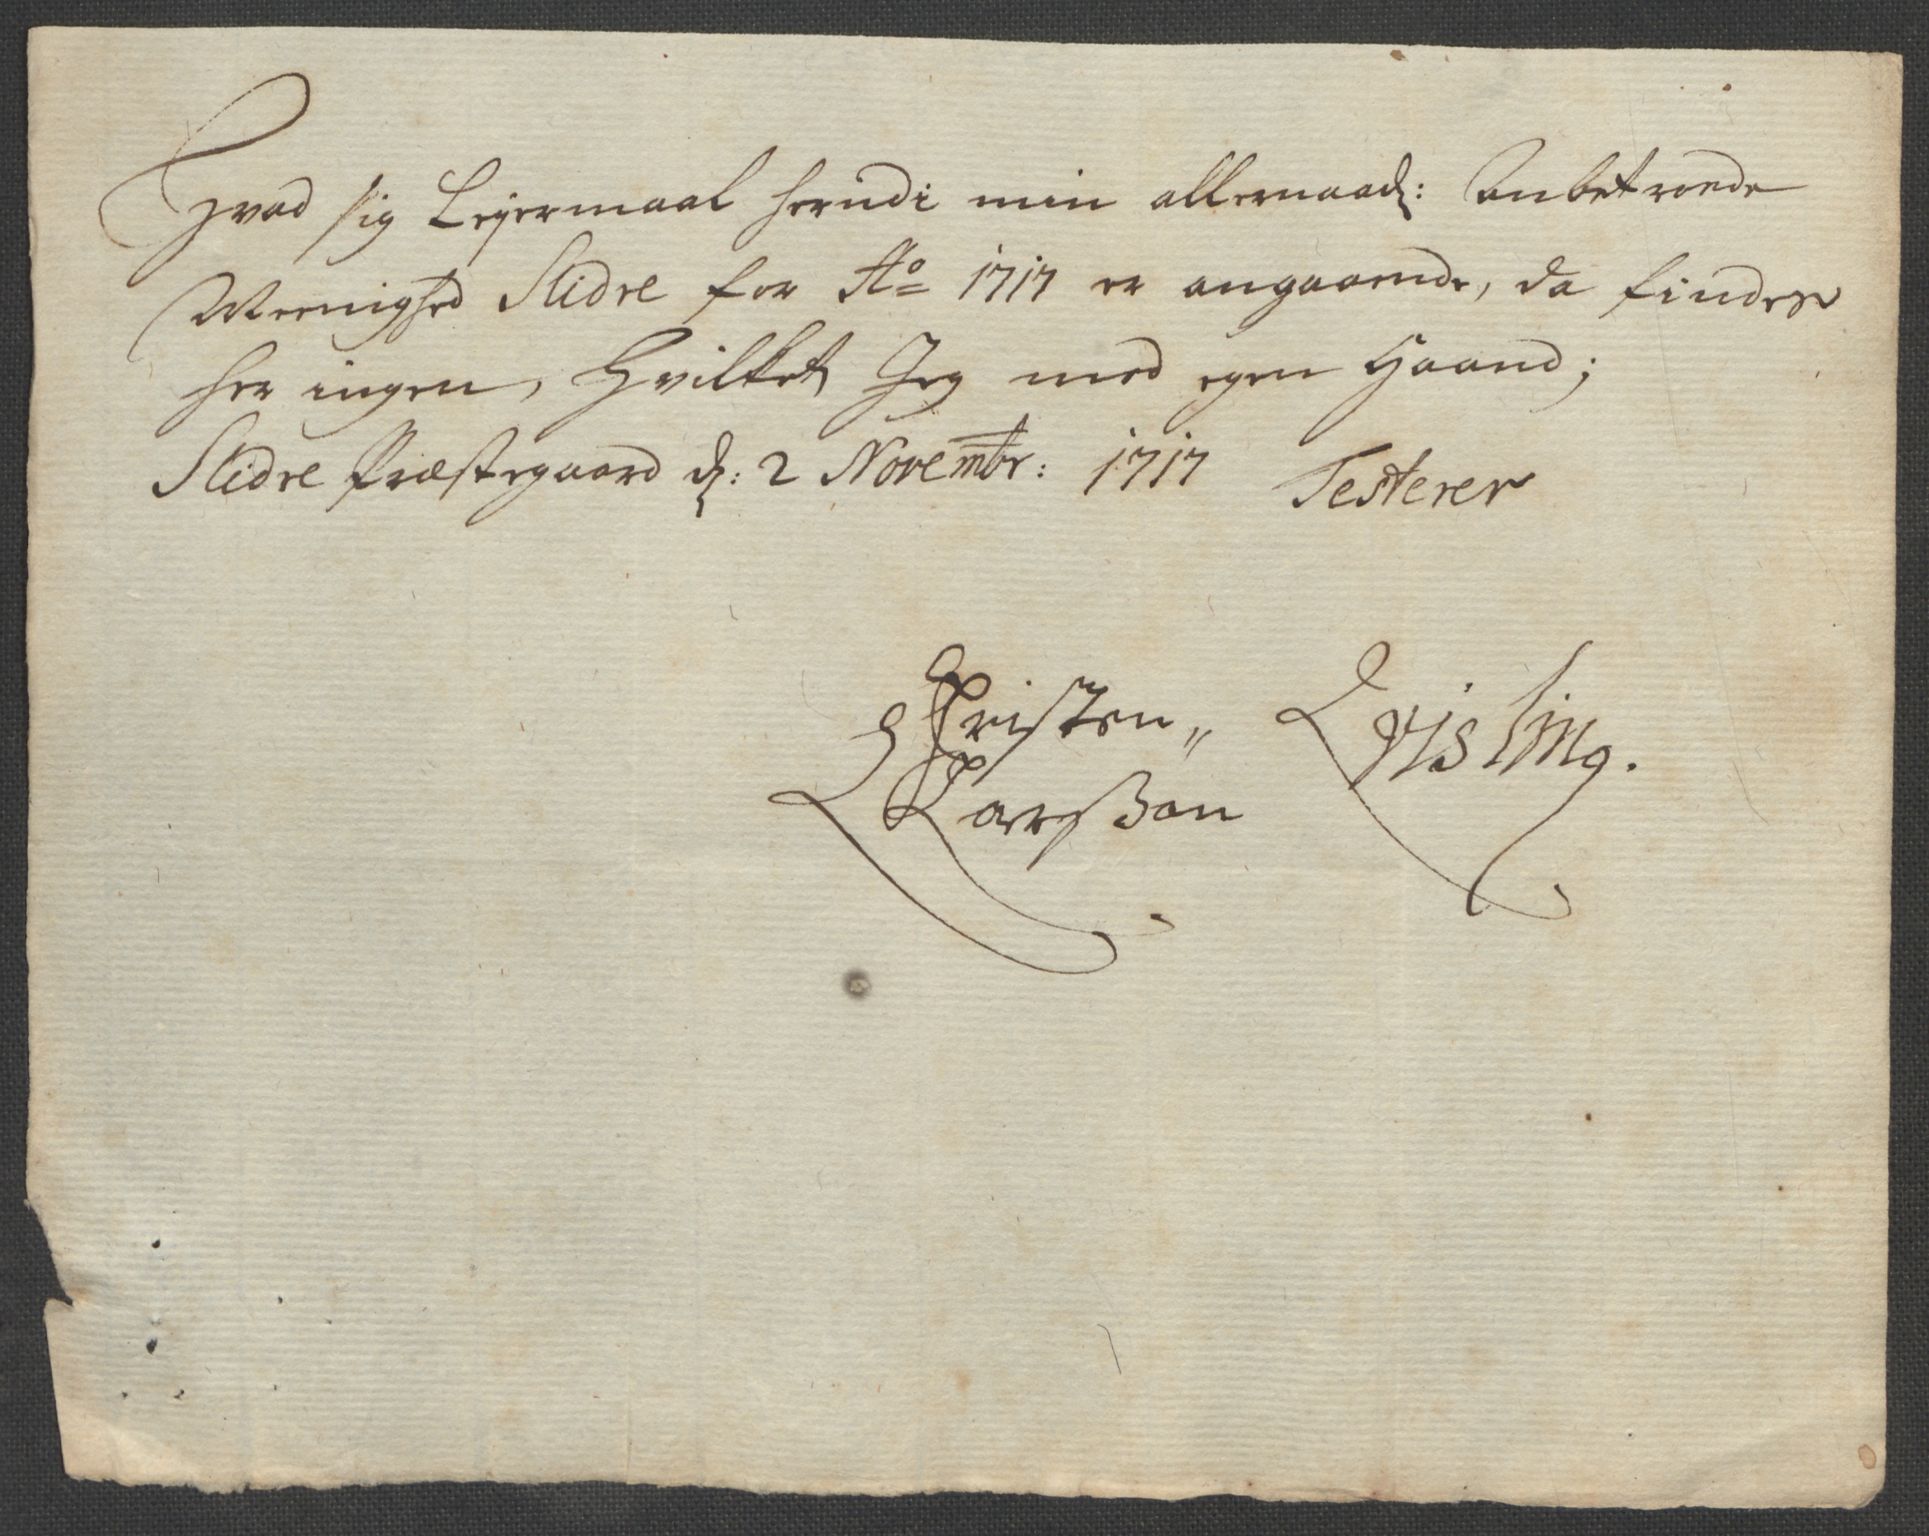 Hvad sig Lejermaal herudi min allernaad: Anbetroede
Meenighed Slidre for Ao 1717 er angaaende, da findes
her ingen, Hvilket Jeg med egen Haand;
Slidre Præstegaard d: 2 Novembr: 1717 Testerer
Christen Qvisling.
Larsßøn